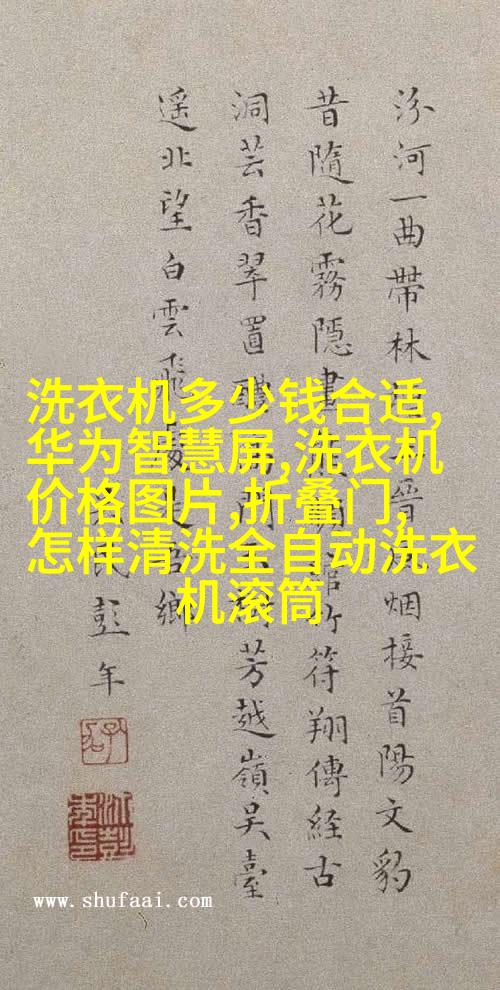 洗衣机多少钱合适,
华为智慧屏,洗衣机
价格图片,折叠门,
怎样清洗全自动洗衣
机滚筒
汾河一曲帶林晉烟接首陽文豹
昔隨花霧隱畫竹符翔傳經古
洞芸香翠置樹芳越嶺吳臺
遥北望白雲飛是鄉
民彭年
www.shufaai.com